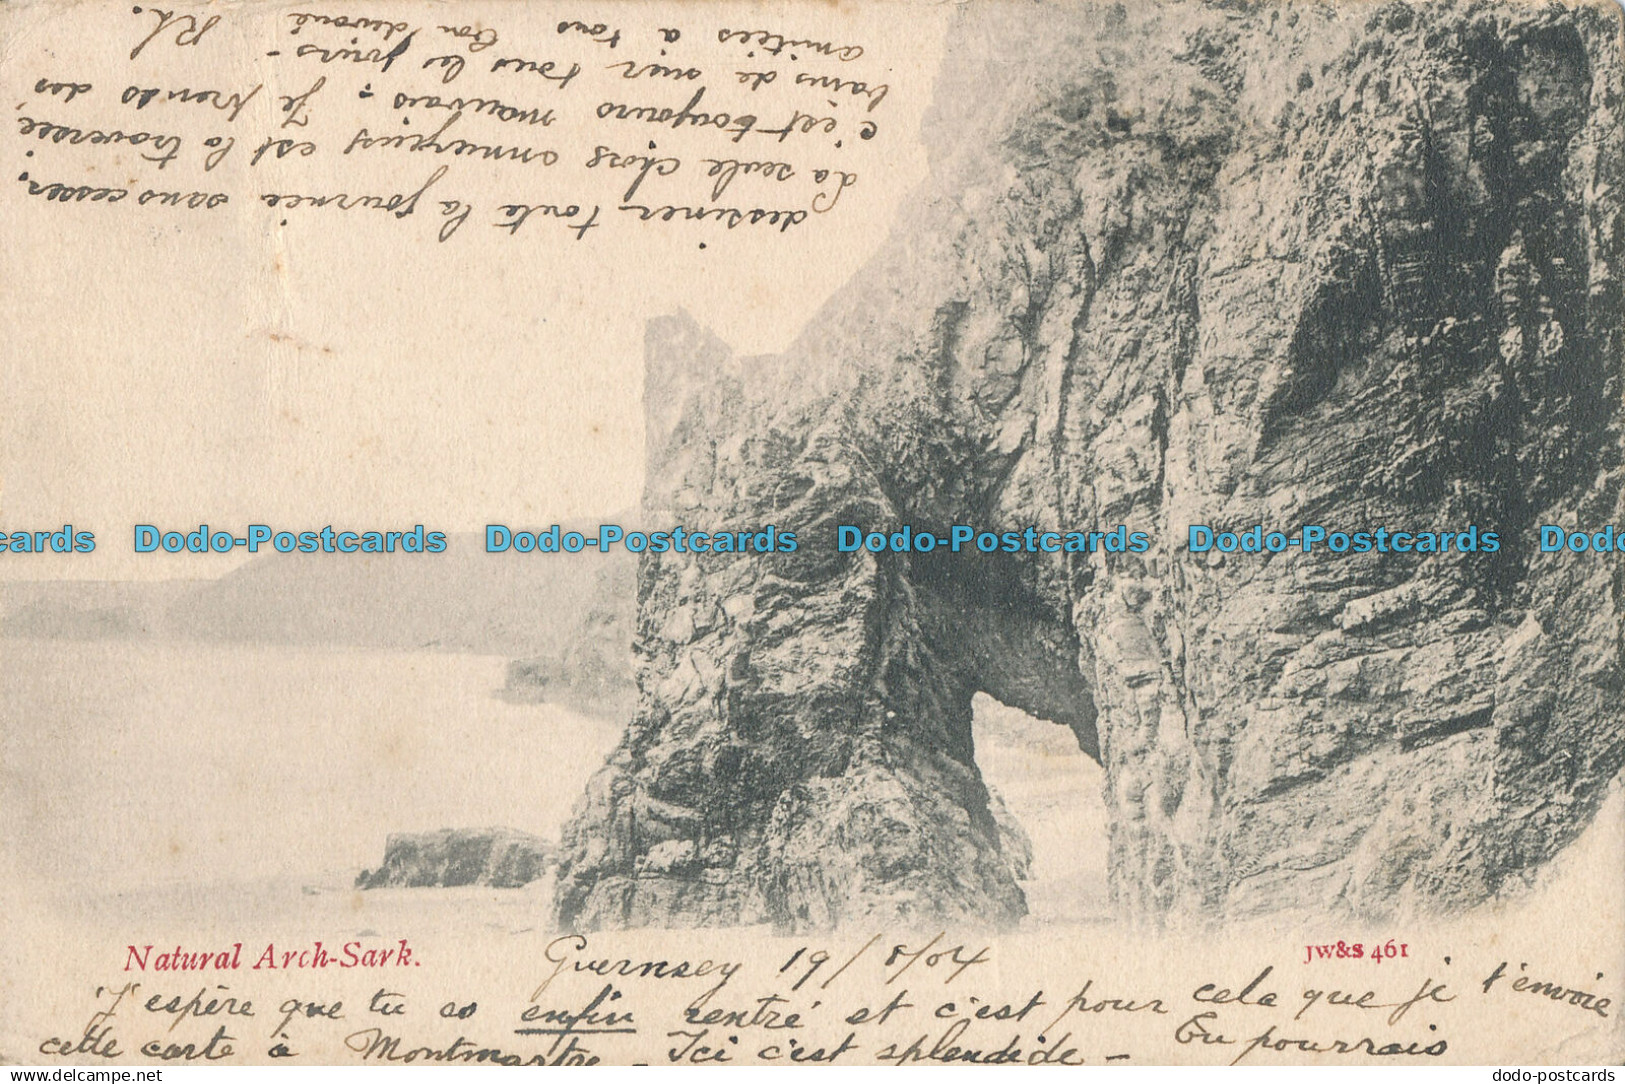 Natural Arch-Sark.
JW&S 461
Guernsey 19/8/04
J'espère que tu es enfin rentré et c'est pour cela que je t'envoie
cette carte à Montmartre - Ici c'est splendide - Tu pourrais
dessiner toute la journée sans cesser.
La seule chose ennuyeuse est la traversée
c'est toujours mauvais. Je prends des
bains de mer tous les jours -
amitiés à tous Ton dévoué
Dodo-Postcards Dodo-Postcards Dodo-Postcards Dodo-Postcards
delcampe.net
dodo-postcards